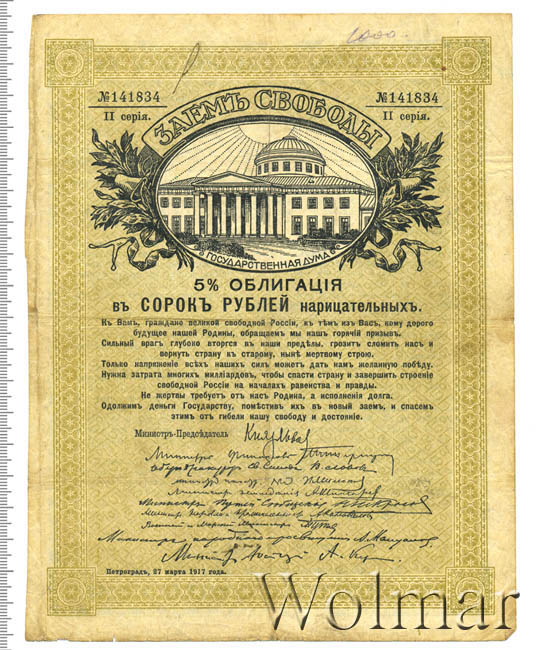 1000
№141834
II серія.
№141834
II серія.
ЗАЕМЪ СВОБОДЫ
ГОСУДАРСТВЕННАЯ ДУМА
5% ОБЛИГАЦІЯ
въ СОРОКЪ РУБЛЕЙ нарицательныхъ.
Къ Вамъ, граждане великой свободной Россіи, къ тѣмъ изъ Васъ, кому дорого
будущее нашей Родины, обращаемъ мы нашъ горячій призывъ.
Сильный врагъ глубоко вторгся въ наши предѣлы, грозитъ сломить насъ и
вернуть страну къ старому, нынѣ мертвому строю.
Только напряженіе всѣхъ нашихъ силъ можетъ дать намъ желанную побѣду.
Нужна затрата многихъ милліардовъ, чтобы спасти страну и завершить строеніе
свободной Россіи на началахъ равенства и правды.
Не жертвы требуетъ отъ насъ Родина, а исполненія долга.
Одолжимъ деньги Государству, помѣстивъ ихъ въ новый заемъ, и спасемъ
этимъ отъ гибели нашу свободу и достояніе.
Министръ-Предсѣдатель Кн. Львов
Министръ финансовъ
Министръ земледѣлія А. Шингарев
Министръ Путей Сообщенія Н. Некрасов
Военный и Морской Министръ
Министръ народнаго просвѣщенія А. Мануйлов
Министръ Юстиціи А. Кер
Петроградъ, 27 марта 1917 года.
Wolmar